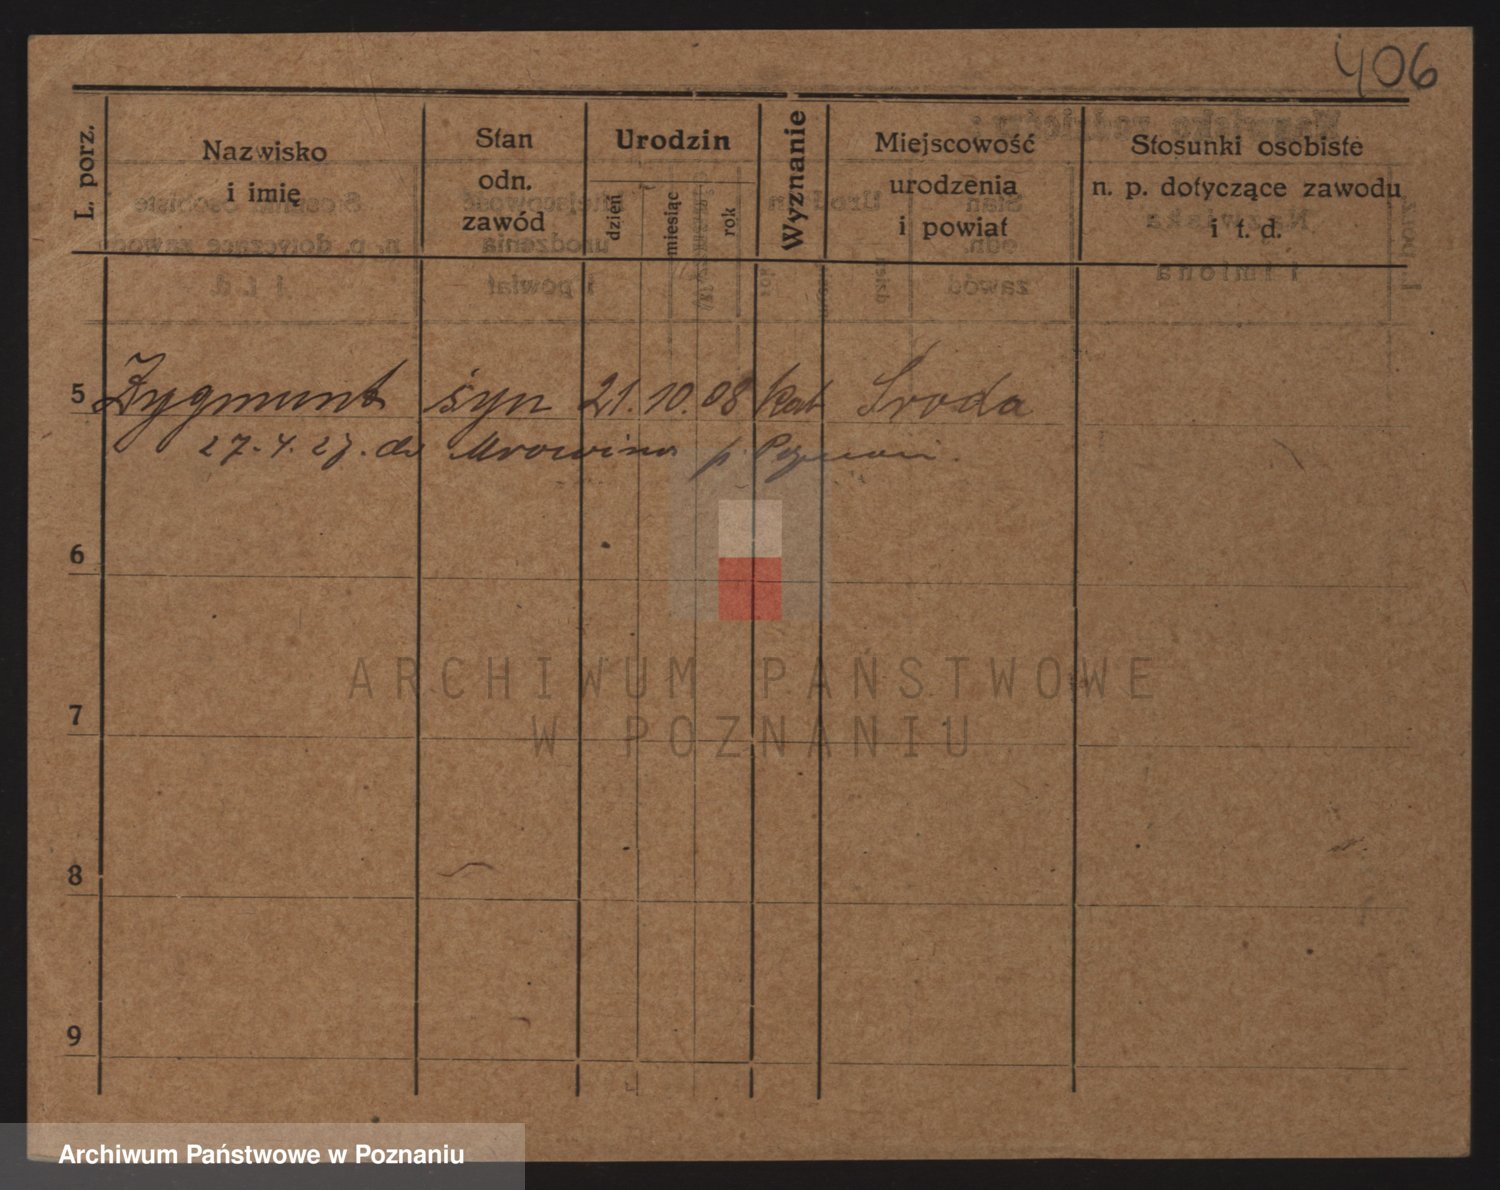 406
L. porz.
Nazwisko
i imię
Stan
odn.
zawód
Urodzin
dzień
miesiąc
rok
Wyznanie
Miejscowość
urodzenia
i powiat
Stosunki osobiste
n. p. dotyczące zawodu
i t. d.
5 Zygmunt syn 21. 10. 08 kat Środa
27. 4. 27. do Mrowino p. Poznań.
6
7
8
9
ARCHIWUM PAŃSTWOWE
W POZNANIU
Archiwum Państwowe w Poznaniu